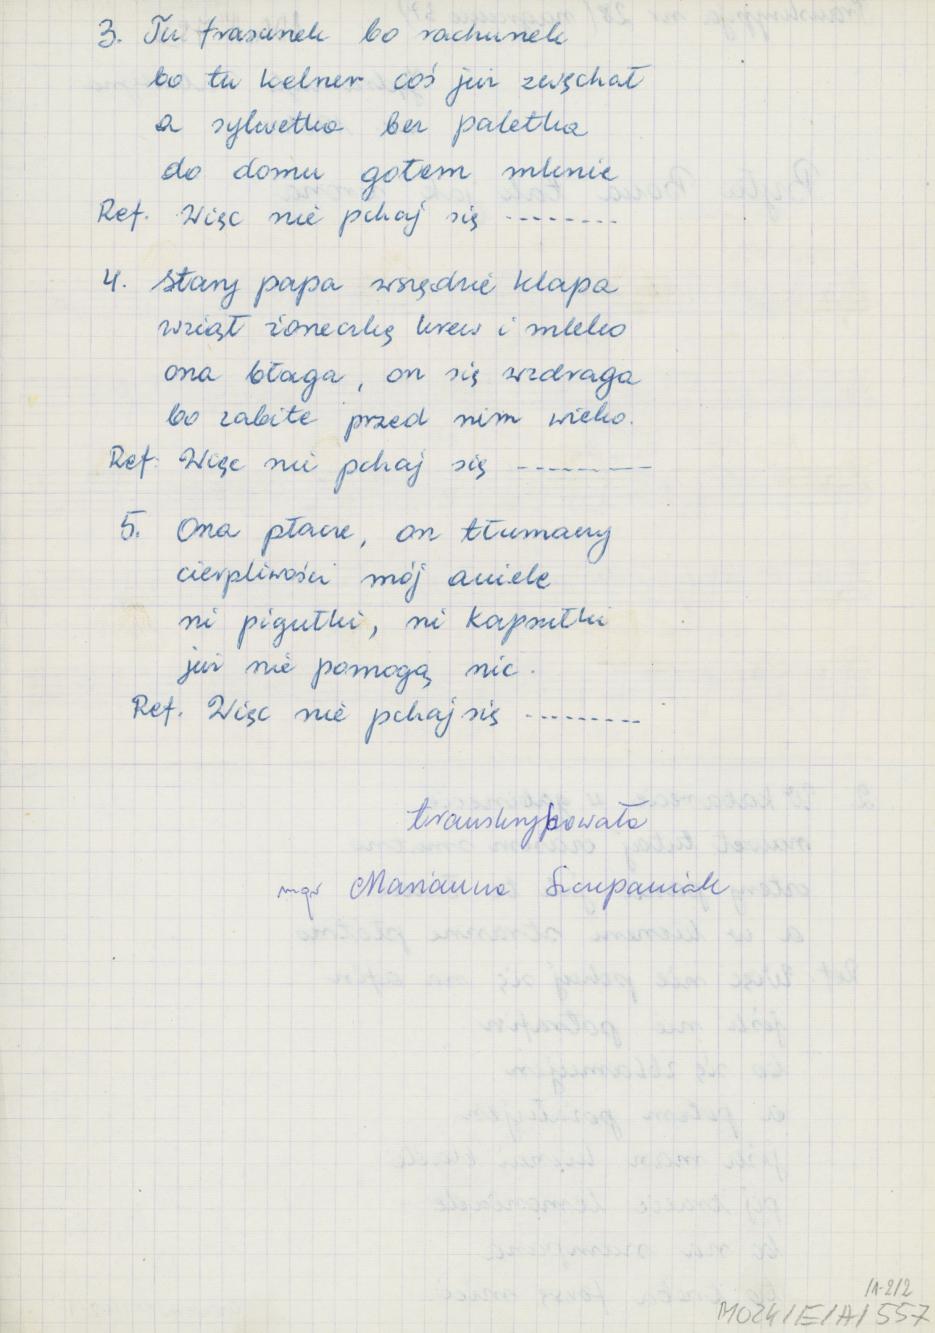 3. Tu frasunek bo rachunek
bo tu kelner coś już zwęchał
a sylwetka bez paletka
do domu gołem mknie
Ref. Więc nie pchaj się ---------
4. Stary papa wszędzie klapa
wziął żoneczkę krew i mleko
ona błaga, on się wzdraga
bo zabite przed nim wieko.
Ref. Więc nie pchaj się ---------
5. Ona płacze, on tłumaczy
cierpliwości mój aniele
ni pigułki, ni kapsułki
już nie pomogą nic.
Ref. Więc nie pchaj się ---------
transkrybowała
mgr Marianna Szczepaniak
1A-2/2
MOZK/E/A/557